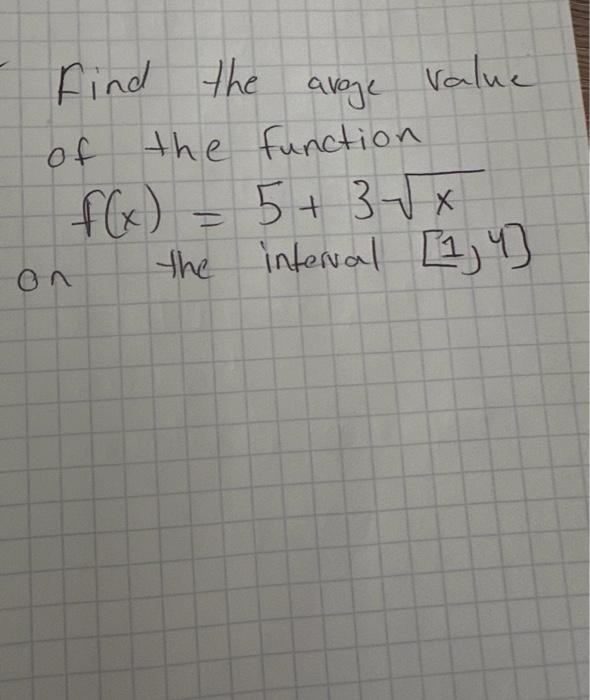 Find the avage value
of the function
f(x) = 5 + 3√x
on the interval [1,4]